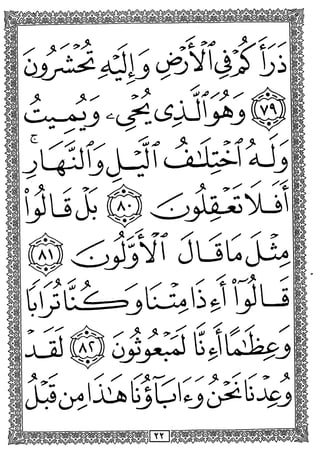 ذَرَأَكُمْ فِي ٱلْأَرْضِ وَإِلَيْهِ تُحْشَرُونَ
﴿٧٩﴾ وَهُوَ ٱلَّذِي يُحْيِۦ وَيُمِيتُ
وَلَهُ ٱخْتِلَٰفُ ٱلَّيْلِ وَٱلنَّهَارِ ۚ
أَفَلَا تَعْقِلُونَ ﴿٨٠﴾ بَلْ قَالُوا۟
مِثْلَ مَا قَالَ ٱلْأَوَّلُونَ ﴿٨١﴾
قَالُوٓا۟ أَءِذَا مِتْنَا وَكُنَّا تُرَابًا
وَعِظَٰمًا أَءِنَّا لَمَبْعُوثُونَ ﴿٨٢﴾ لَقَدْ
وُعِدْنَا نَحْنُ وَءَابَآؤُنَا هَٰذَا مِن قَبْلُ
٢٢